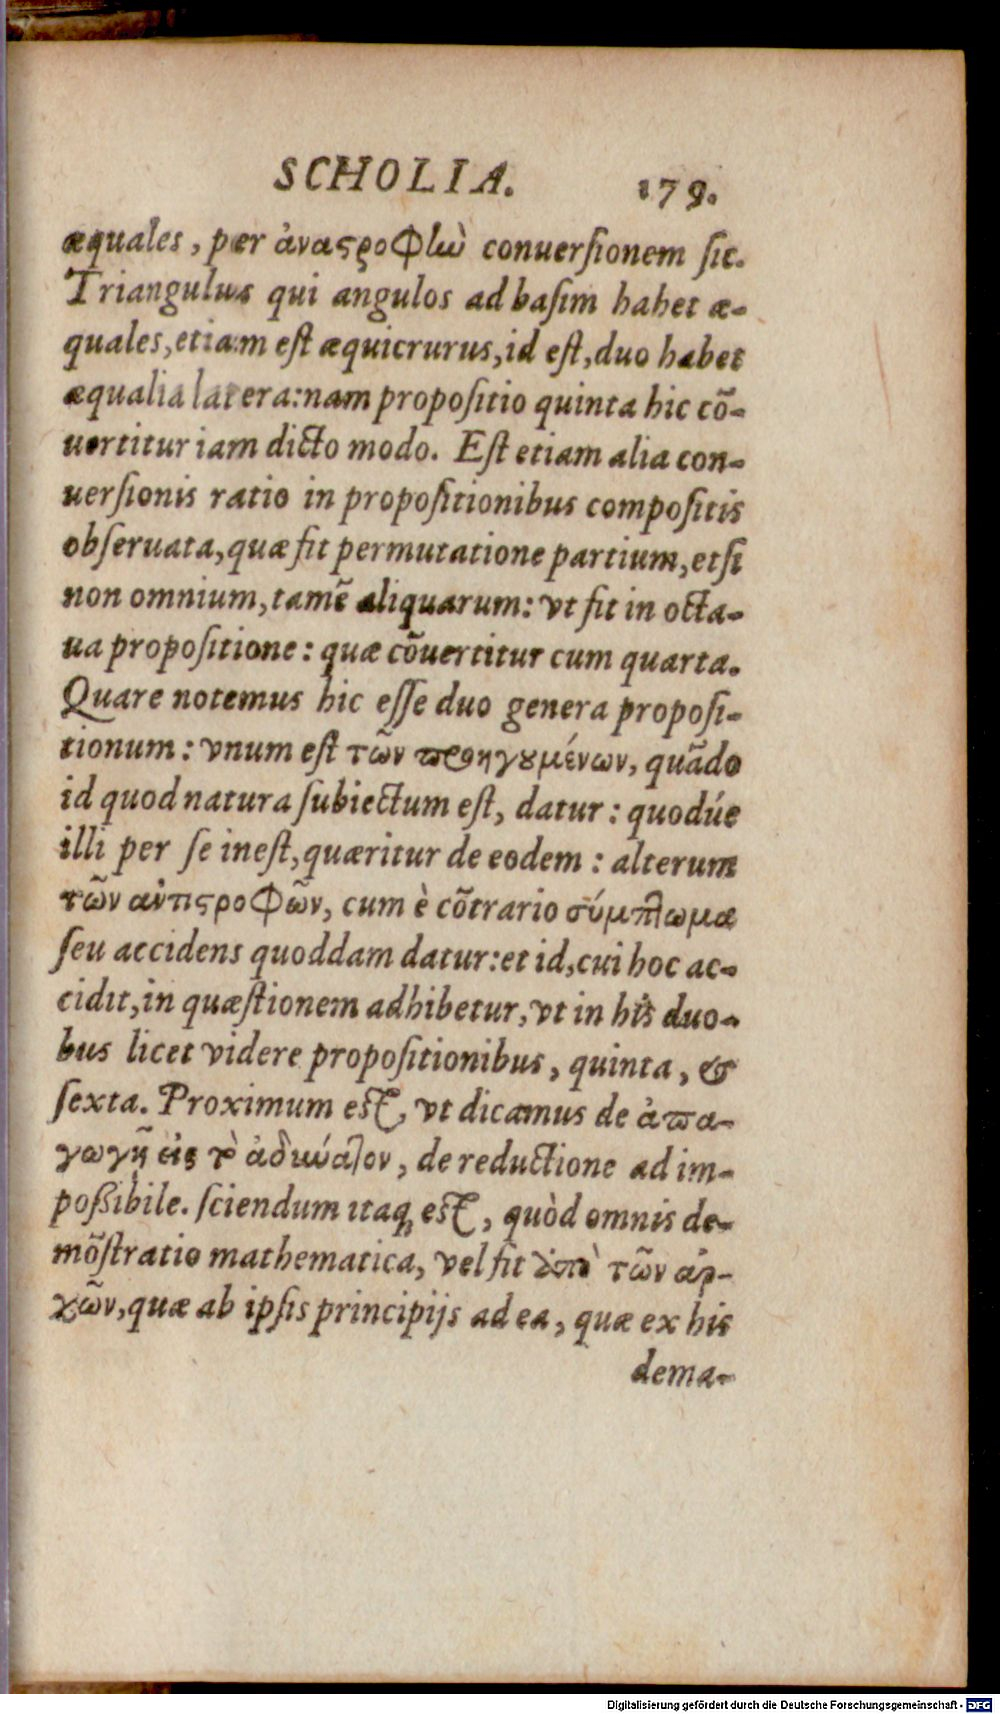 SCHOLIA. 179.
æquales, per ἀναϛροφὼ conuerſionem ſic.
Triangulus qui angulos ad baſim habet æ-
quales, etiam eſt æquicrurus, id eſt, duo habet
æqualia latera: nam propoſitio quinta hic cō-
uertitur iam dicto modo. Eſt etiam alia con-
uerſionis ratio in propoſitionibus compoſitis
obſeruata, quæ fit permutatione partium, etſi
non omnium, tamē aliquarum: vt fit in octa-
ua propoſitione: quæ cōuertitur cum quarta.
Quare notemus hic eſſe duo genera propoſi-
tionum: vnum eſt τῶν προηγȣμένων, quādo
id quod natura ſubiectum eſt, datur: quodúe
illi per ſe ineſt, quæritur de eodem: alterum
τῶν ἀντιϛροφῶν, cum è cōtrario σύμπτωμα
ſeu accidens quoddam datur: et id, cui hoc ac-
cidit, in quæſtionem adhibetur, vt in his duo-
bus licet videre propoſitionibus, quinta, &
ſexta. Proximum eſt, vt dicamus de ἀπα-
γωγῇ εἰς τὸ ἀδιύατον, de reductione ad im-
poßibile. ſciendum itaq; eſt, quòd omnis de-
mōſtratio mathematica, vel fit ἀπὸ τῶν ἀρ-
χῶν, quæ ab ipſis principijs ad ea, quæ ex his
dema-
Digitalisierung gefördert durch die Deutsche Forschungsgemeinschaft - DFG